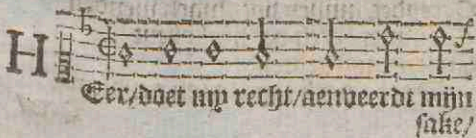 HEer/doet my recht/aenveerdt mijn
sake/